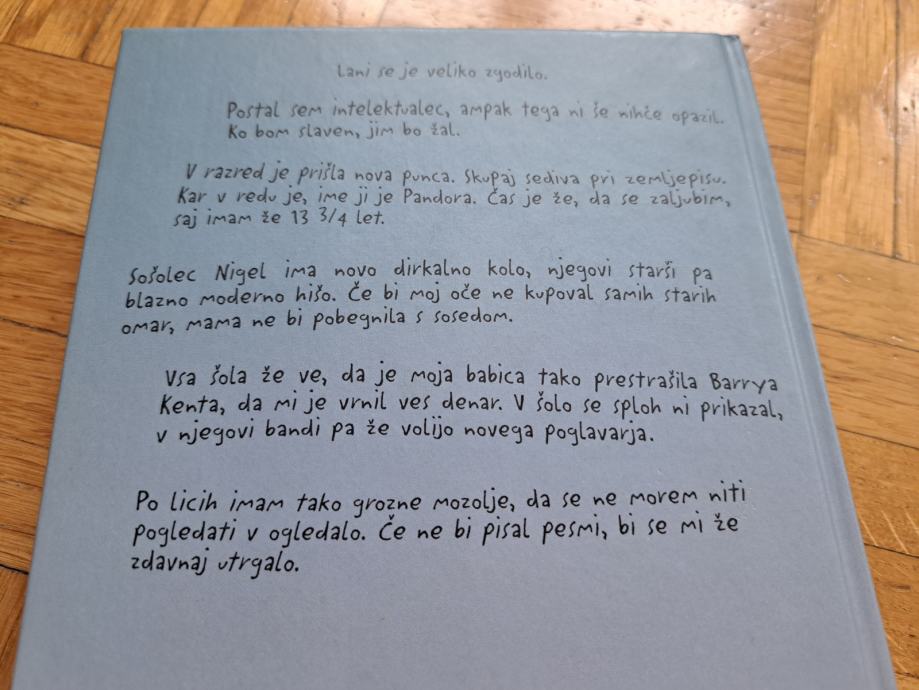 Lani se je veliko zgodilo.
Postal sem intelektualec, ampak tega ni še nihče opazil.
Ko bom slaven, jim bo žal.
V razred je prišla nova punca. Skupaj sediva pri zemljepisu.
Kar v redu je, ime ji je Pandora. Čas je že, da se zaljubim,
saj imam že 13 3/4 let.
Sošolec Nigel ima novo dirkalno kolo, njegovi starši pa
blazno moderno hišo. Če bi moj oče ne kupoval samih starih
omar, mama ne bi pobegnila s sosedom.
Vsa šola že ve, da je moja babica tako prestrašila Barrya
Kenta, da mi je vrnil ves denar. V šolo se sploh ni prikazal,
v njegovi bandi pa že volijo novega poglavarja.
Po licih imam tako grozne mozolje, da se ne morem niti
pogledati v ogledalo. Če ne bi pisal pesmi, bi se mi že
zdavnaj utrgalo.